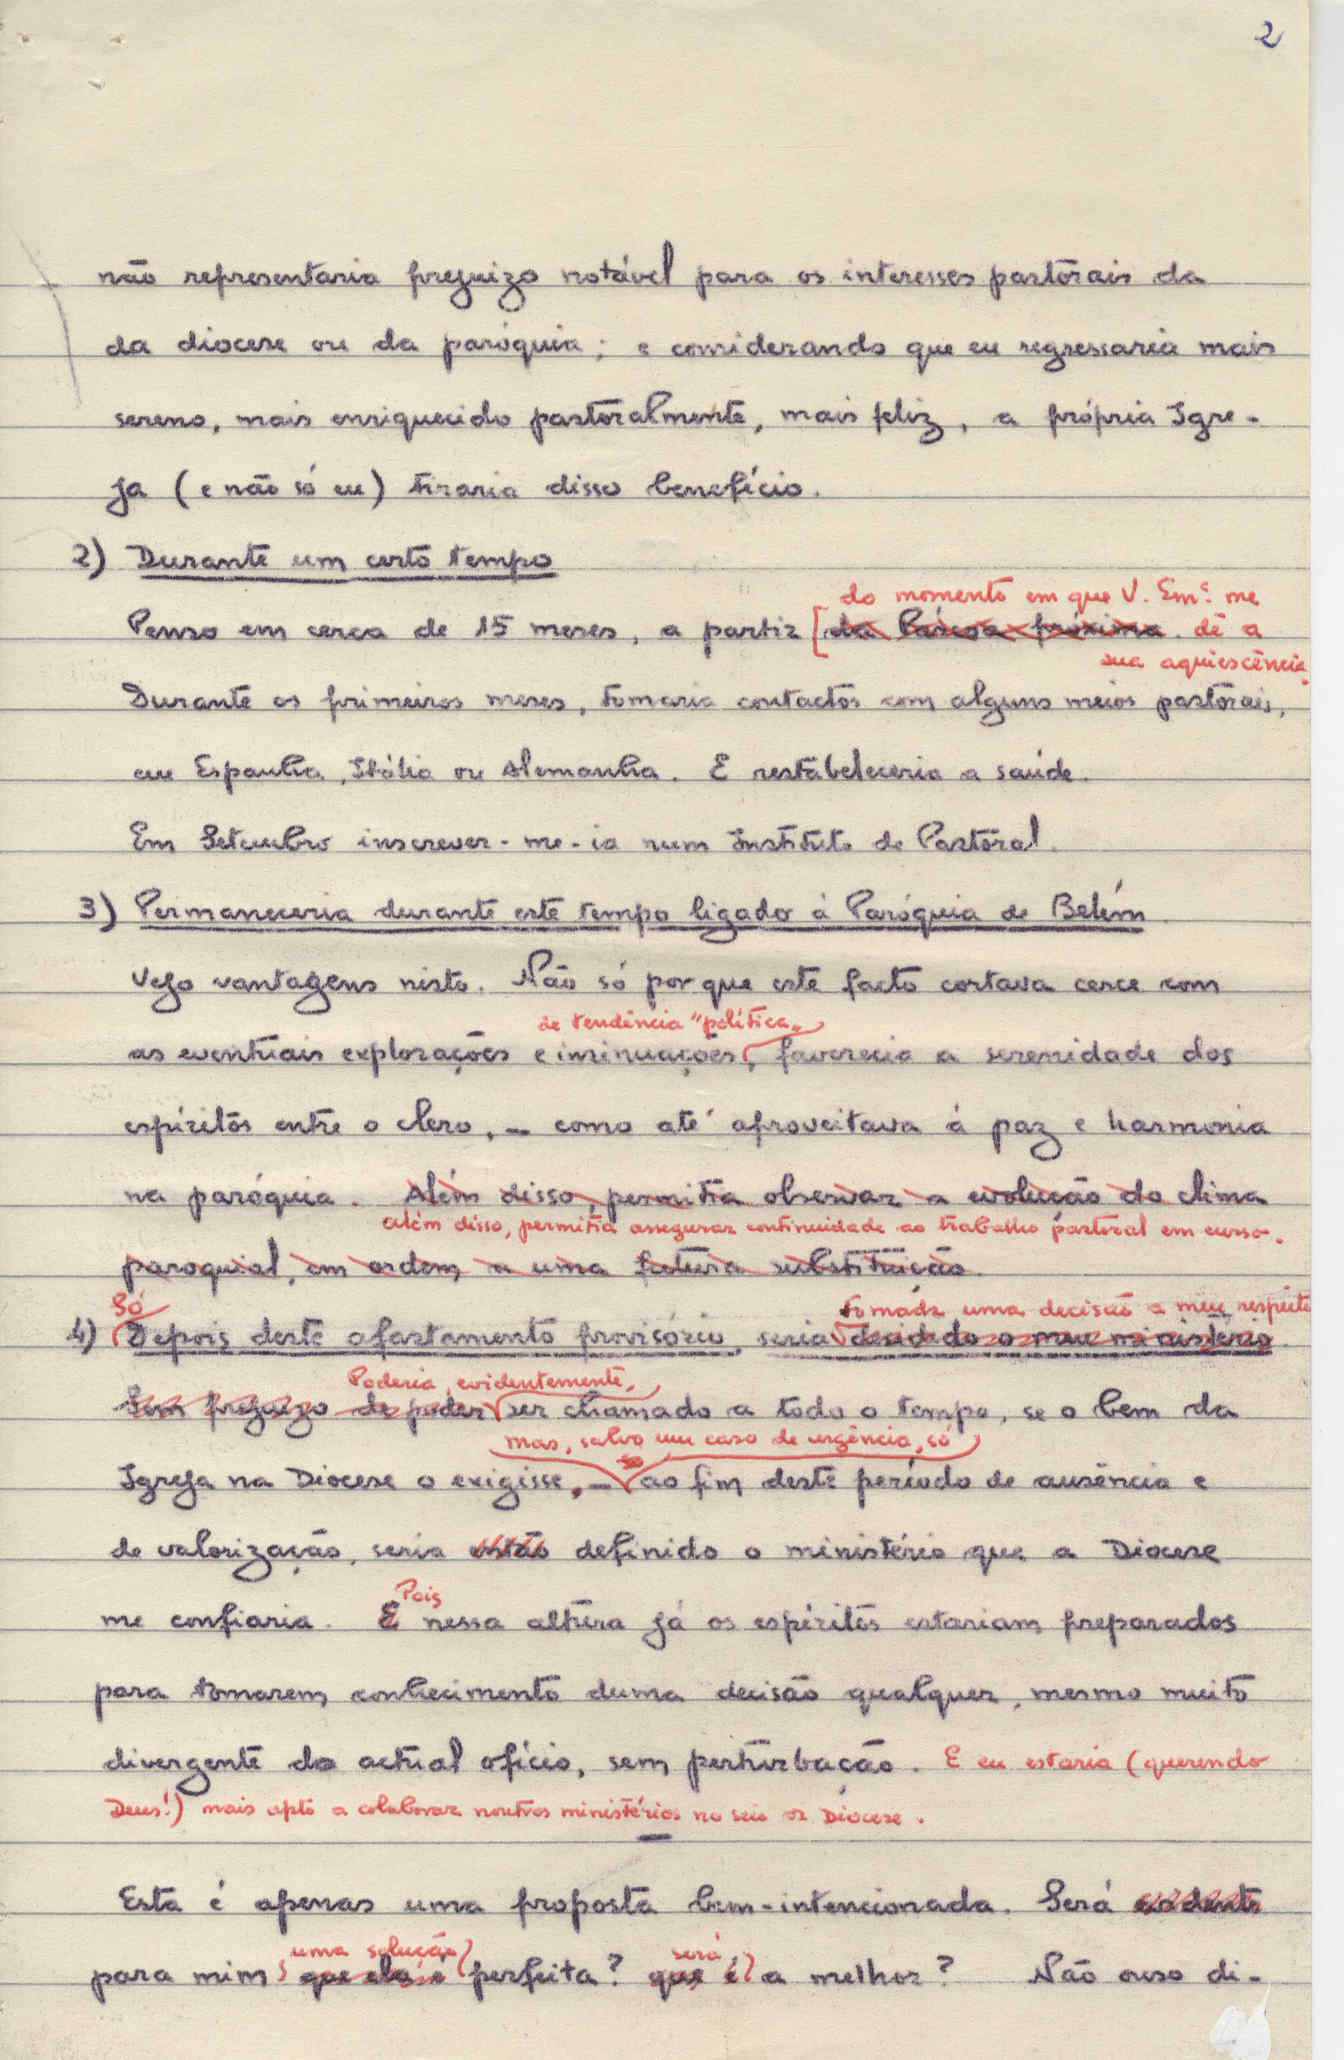 2
não representaria prejuizo notável para os interesses pastorais da
da diocese ou da paróquia; e considerando que eu regressaria mais
sereno, mais enriquecido pastoralmente, mais feliz, a própria Igre-
ja (e não só eu) tiraria disso benefício.
2) Durante um certo tempo
do momento em que V. Emª. me
Penso em cerca de 15 meses, a partir [da Páscoa próxima. dê a
sua aquiescência.
Durante os primeiros meses, tomaria contactos com alguns meios pastorais,
em Espanha, Itália ou Alemanha. E restabeleceria a saúde.
Em Setembro inscrever-me-ia num Instituto de Pastoral.
3) Permaneceria durante este tempo ligado à Paróquia de Belém.
Vejo vantagens nisto. Não só porque este facto cortava cerce com
de tendência "política"
as eventuais explorações e insinuações, favorecia a serenidade dos
espíritos entre o clero, - como até aproveitava à paz e harmonia
na paróquia. Além disso, permitia observar a evolução do clima
além disso, permitia assegurar continuidade ao trabalho pastoral em curso.
paroquial, em ordem a uma futura substituição.
Só tomada uma decisão a meu respeito
4) Depois deste afastamento provisório, seria decidido o meu ministério.
Poderia, evidentemente,
Sem prejuizo de poder ser chamado a todo o tempo, se o bem da
mas, salvo um caso de urgência, só
Igreja na Diocese o exigisse, - ao fim deste período de ausência e
de valorização, seria então definido o ministério que a Diocese
Pois
me confiaria. E nessa altura já os espíritos estariam preparados
para tomarem conhecimento duma decisão qualquer, mesmo muito
divergente do actual ofício, sem perturbação. E eu estaria (querendo
Deus!) mais apto a colaborar noutros ministérios no seio da Diocese.
Esta é apenas uma proposta bem-intencionada. Será
uma solução será
para mim que ela é perfeita? que é a melhor? Não ouso di-